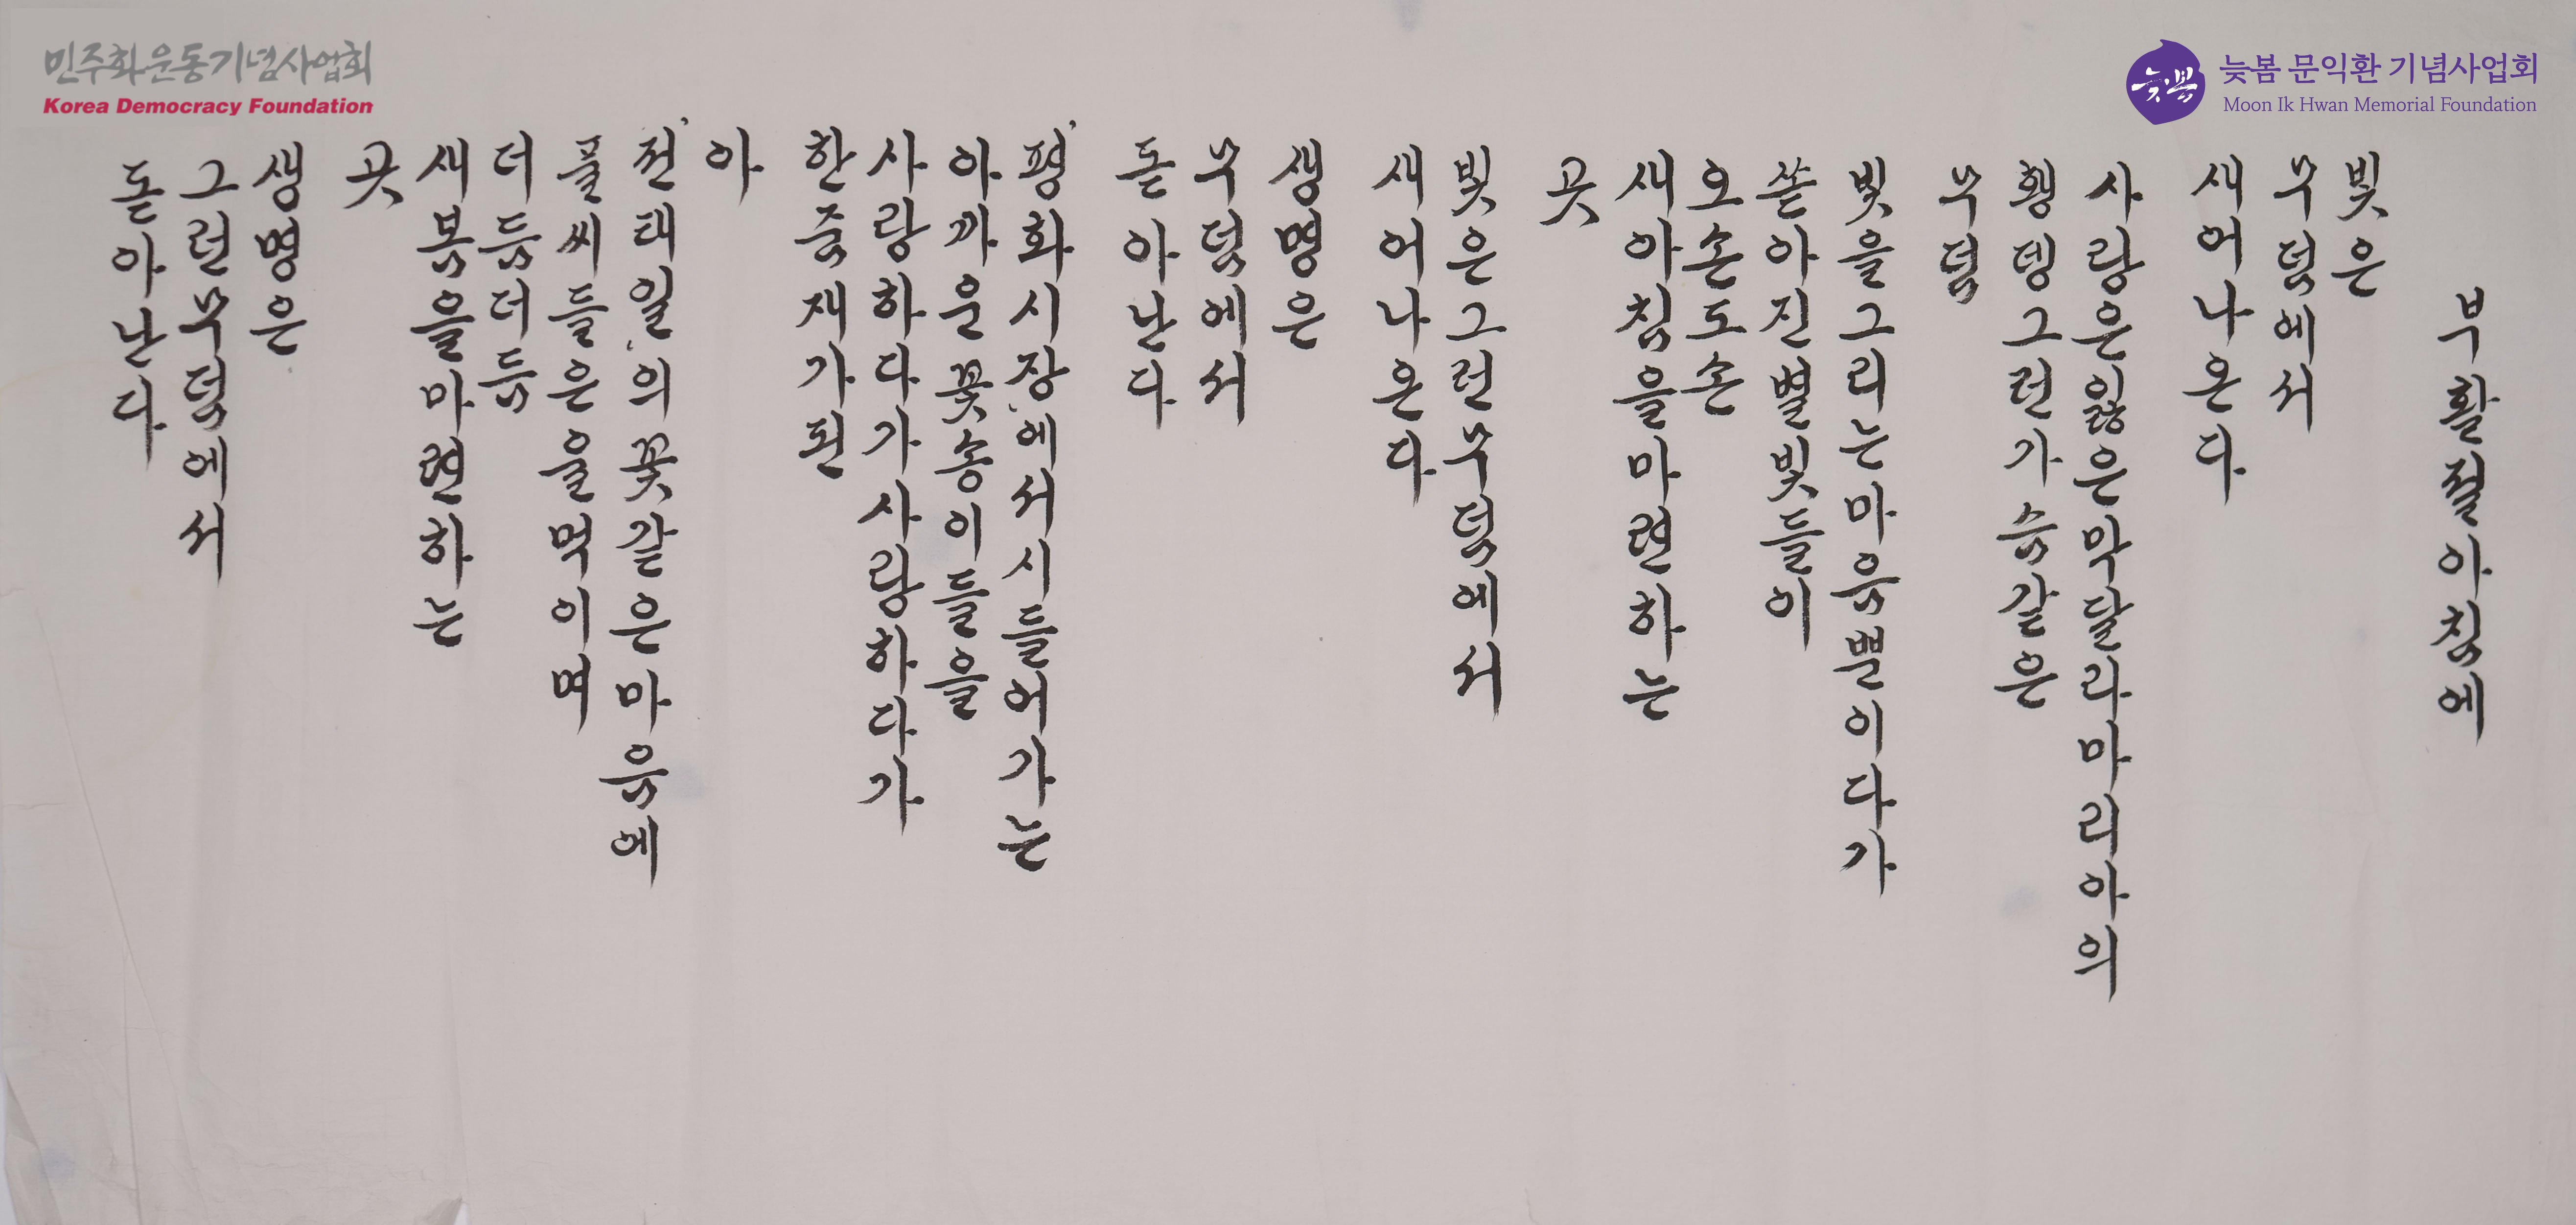 민주화운동기념사업회
Korea Democracy Foundation
늦봄
늦봄 문익환 기념사업회
Moon Ik Hwan Memorial Foundation
부활절아침에
빛은
무덤에서
새어나온다
사랑은잃은막달라마리아의
휑뎅그런가슴같은
무덤
빛을그리는마음뿐이다가
쏟아진별빛들이
오손도손
새아침을마련하는
곳
빛은그런무덤에서
새어나온다
생명은
무덤에서
돋아난다
'평화시장'에서시들어가는
아까운꽃송이들을
사랑하다가사랑하다가
한줌재가된
아
'전태일'의꽃같은마음에
풀씨들은울먹이며
더듬더듬
새봄을마련하는
곳
생명은
그런무덤에서
돋아난다